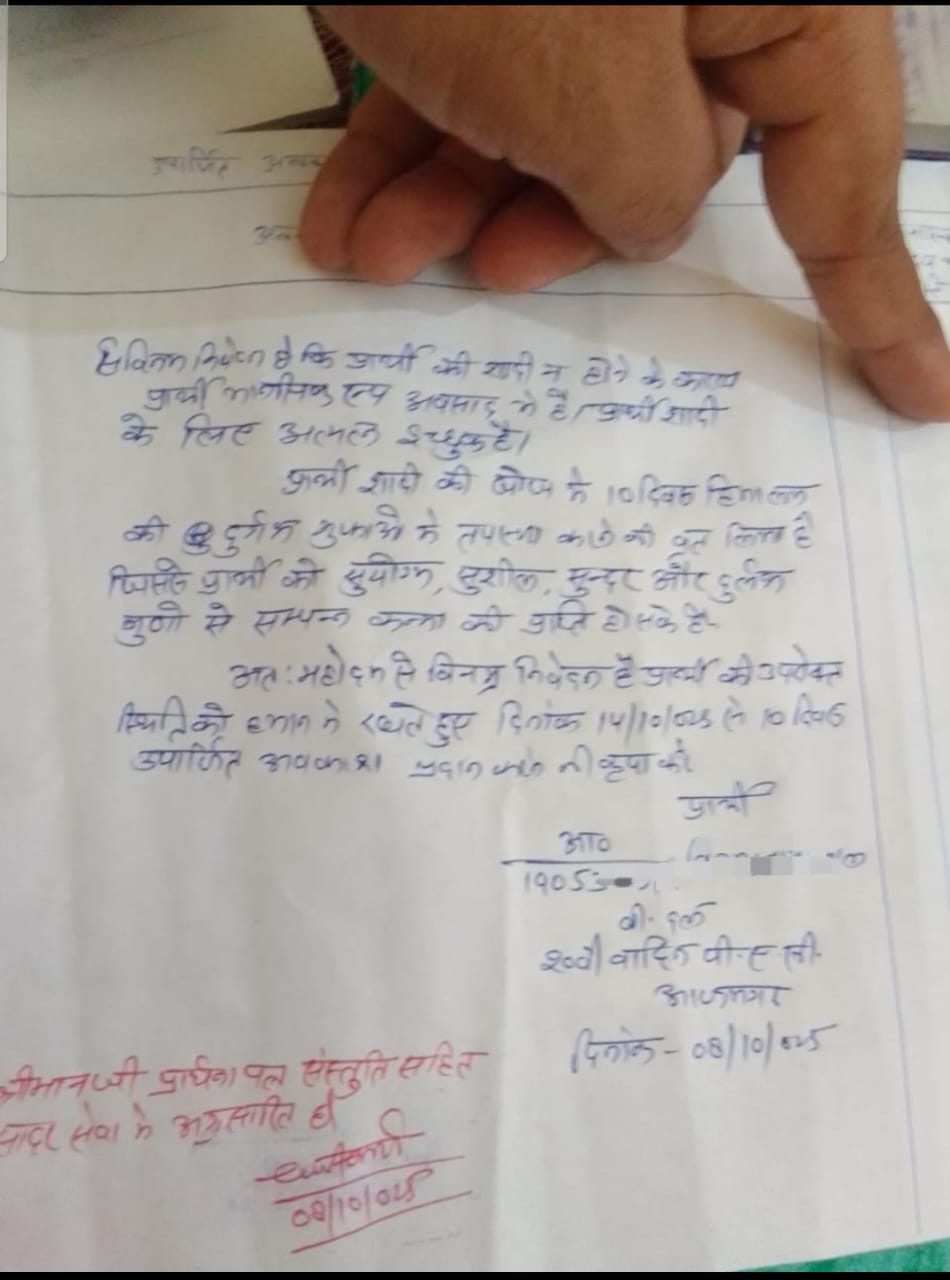 उपार्जित
सविनय निवेदन है कि प्रार्थी की शादी न होने के कारण
प्रार्थी मानसिक रूप अवसाद मे है। प्रार्थी शादी
के लिए अत्यन्त इच्छुक है।
प्रार्थी शादी की खोज मे 10 दिवस हिमालय
की दुर्गम गुफाओ मे तपस्या करने की व्रत लिया है
जिससे प्रार्थी को सुयोग्य, सुशील, सुन्दर और दुर्लभ
गुणो से सम्पन्न कन्या की प्राप्ति हो सके है-
अत: महोदय से विनम्र निवेदन है प्रार्थी की उपरोक्त
स्थिति को ध्यान मे रखते हुए दिनांक 14/10/025 से 10 दिवस
उपार्जित अवकाश प्रदान करने की कृपा करे
प्रार्थी
आ०
1905
बी. दल
20वी वाहिनी पी.ए.सी.
आजमगढ़
दिनांक - 08/10/025
श्रीमान जी प्रार्थना पत्र संस्तुति सहित
सादर सेवा मे अग्रसारित है
08/10/025